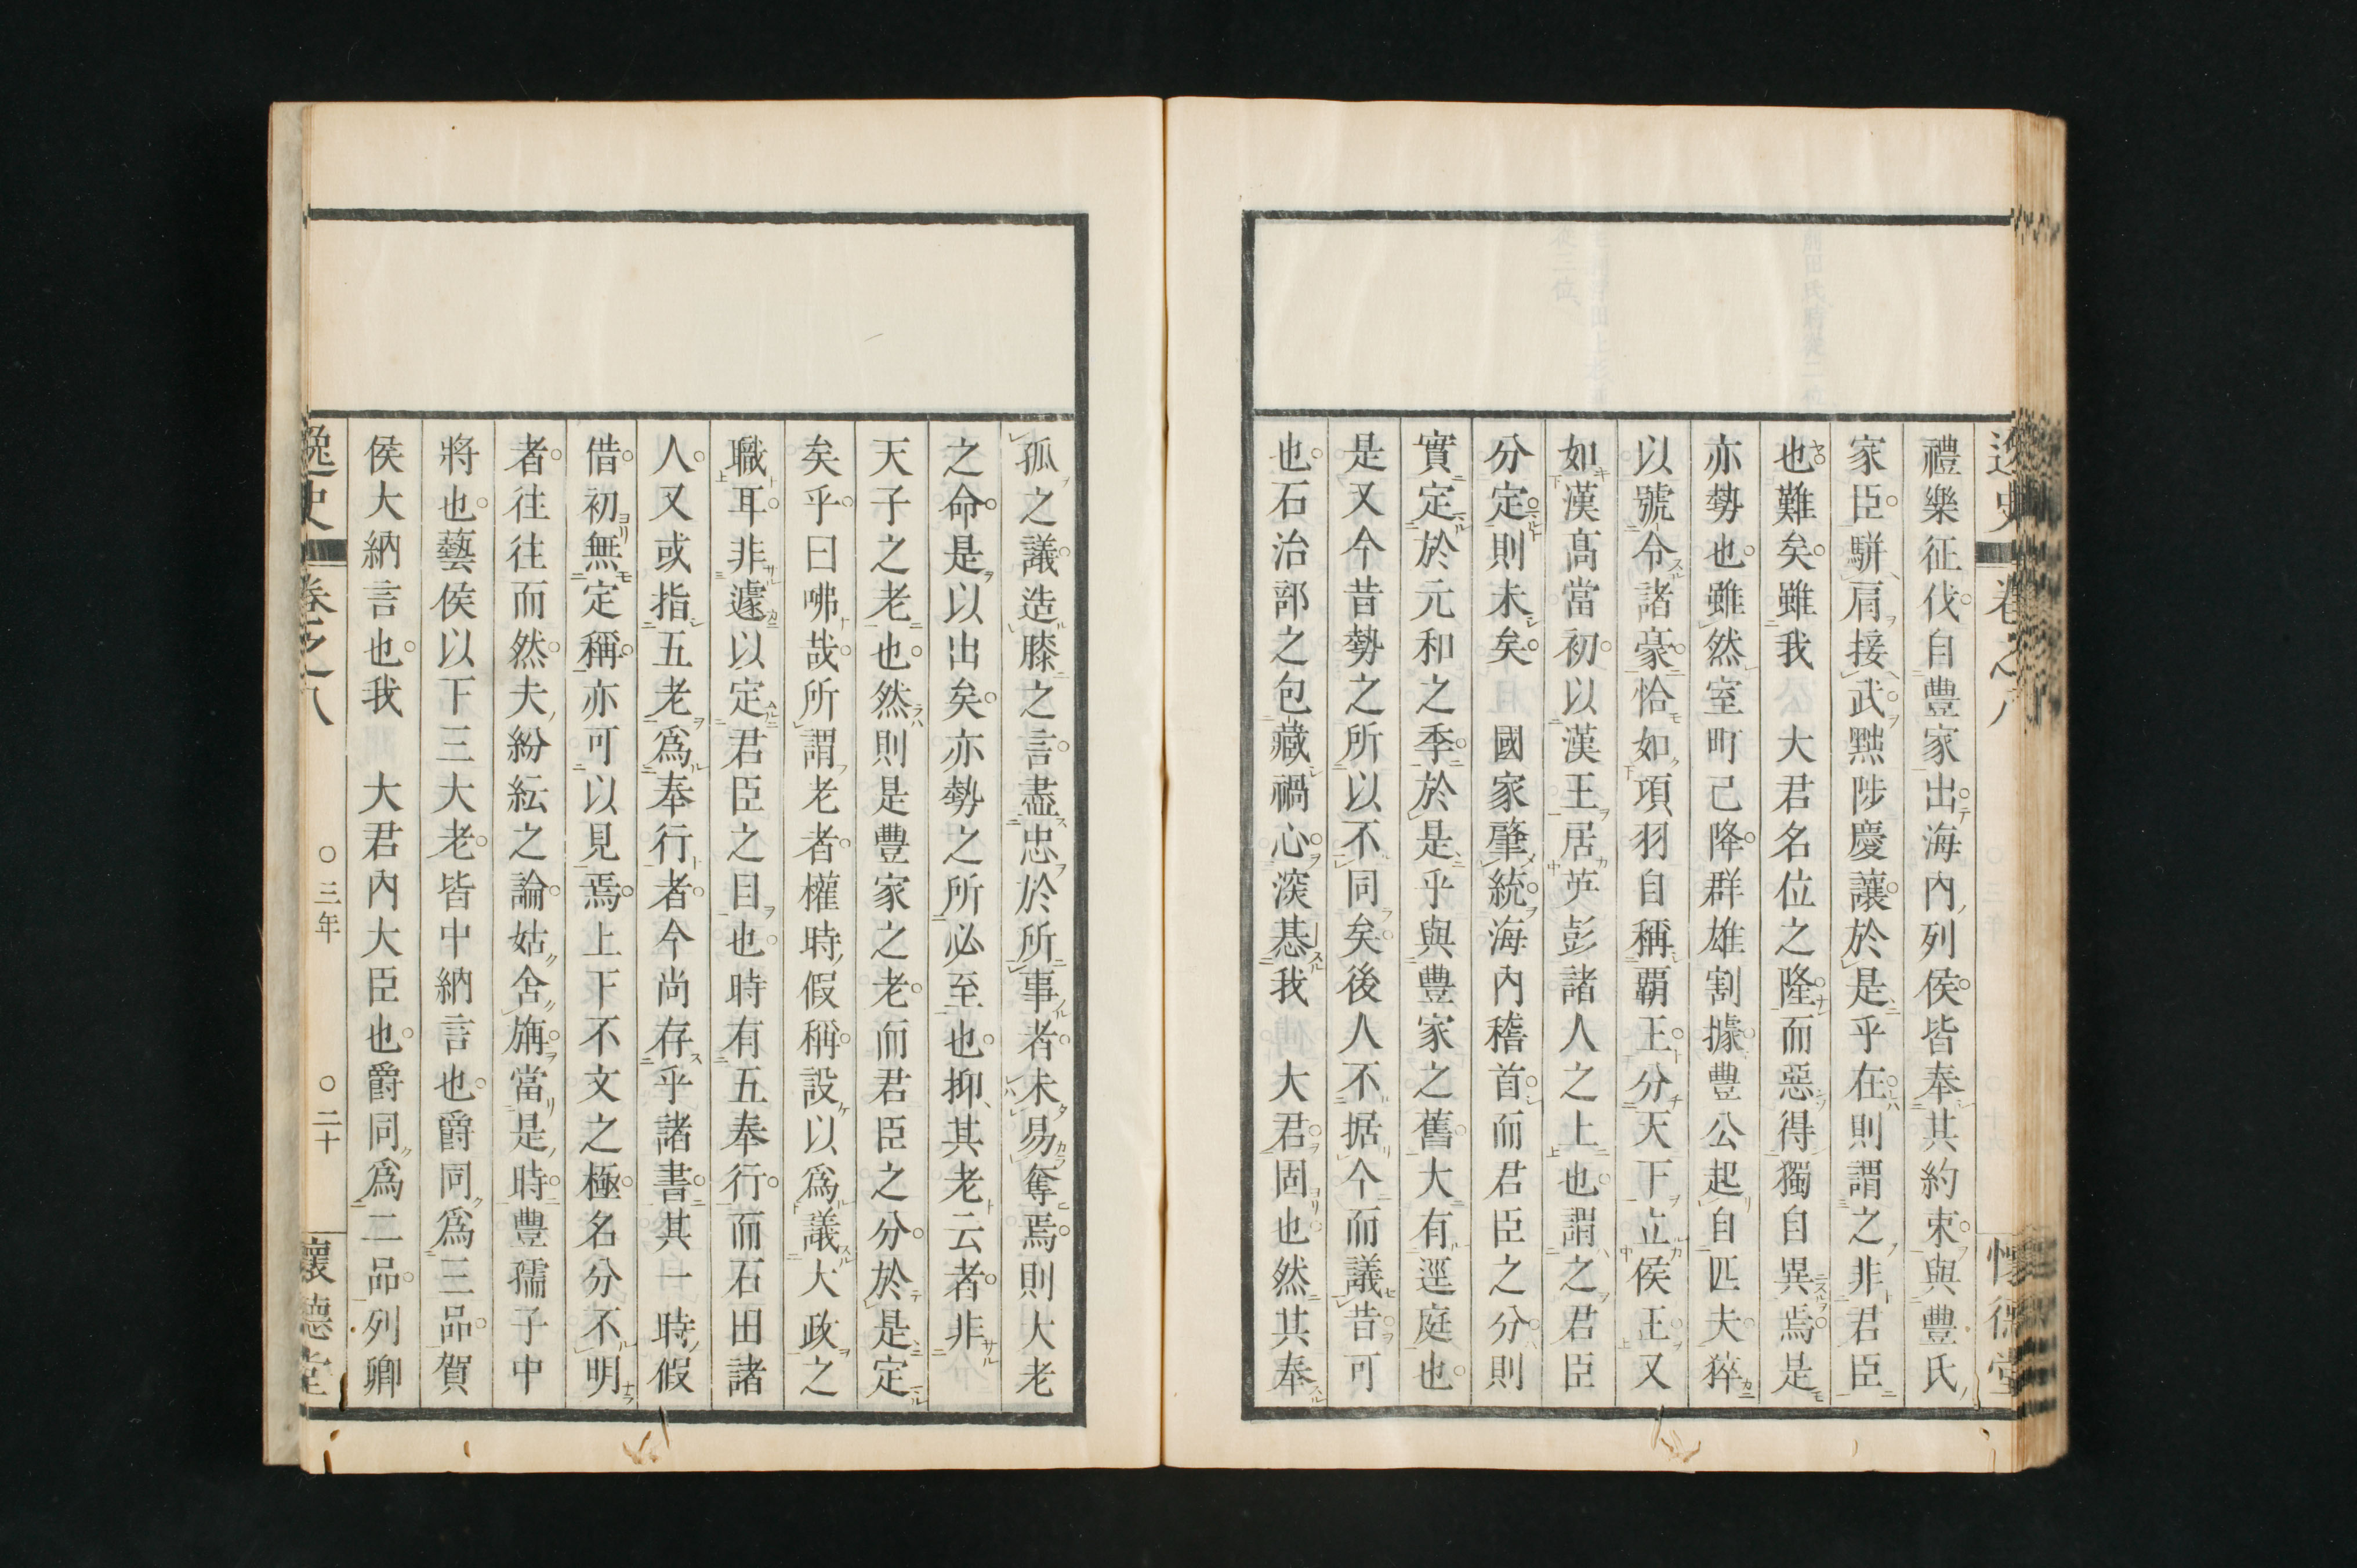 禮樂征伐自豐家出海內列侯皆奉其約束與豐氏
家臣駢肩接武黜陟慶讓於是乎在則謂之非君臣
也難矣雖我　大君名位之隆而惡得獨自異焉是
亦勢也雖然室町已降群雄割據豐公起自匹夫猝
以號令諸豪恰如項羽自稱覇王分天下立侯王又
如漢高當初以漢王居英彭諸人之上也謂之君臣
分定則未矣　國家肇統海內稽首而君臣之分則
實定於元和之季於是乎與豐家之舊大有逕庭也
是又今昔勢之所以不同矣後人不据今而議昔可
也石治部之包藏禍心深惎我　大君固也然其奉
孤之議造膝之言盡忠於所事者未易奪焉則大老
之命是以出矣亦勢之所必至也抑其老云者非
天子之老也然則是豐家之老而君臣之分於是定
矣乎曰咈哉所謂老者權時假稱設以爲議大政之
職耳非遽以定君臣之目也時有五奉行而石田諸
人又或指五老爲奉行者今尚存乎諸書其一時假
借初無定稱亦可以見焉上下不文之極名分不明
者往往而然夫紛紜之論姑舍旃當是時豐孺子中
將也藝侯以下三大老皆中納言也爵同爲三品賀
侯大納言也我　大君內大臣也爵同爲二品列卿
逸史　卷之八　〇三年　〇二十　懷德堂